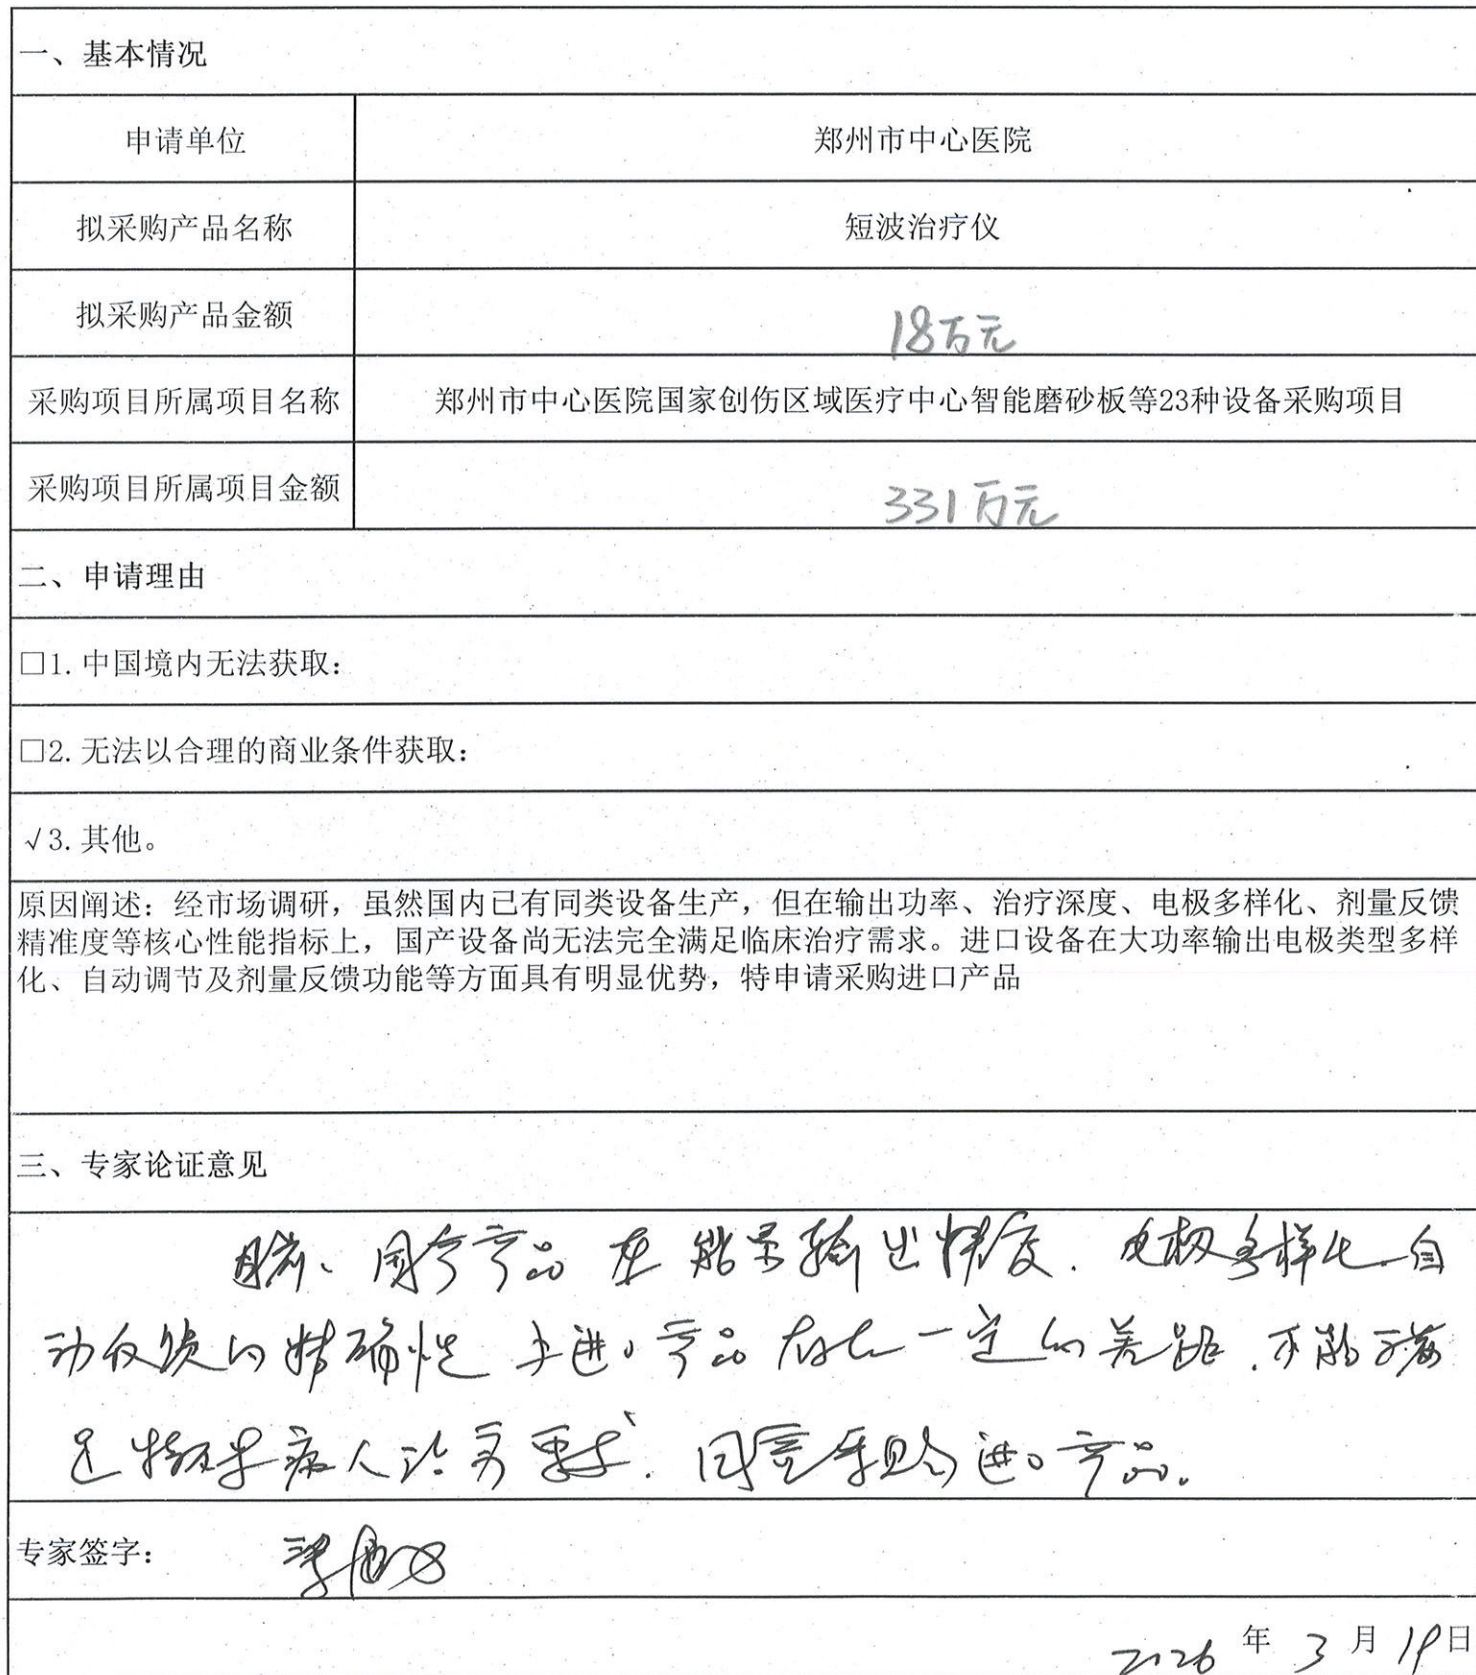 一、基本情况
申请单位 郑州市中心医院
拟采购产品名称 短波治疗仪
拟采购产品金额 18万元
采购项目所属项目名称 郑州市中心医院国家创伤区域医疗中心智能磨砂板等23种设备采购项目
采购项目所属项目金额 331万元
二、申请理由
□1.中国境内无法获取:
□2.无法以合理的商业条件获取:
√3.其他。
原因阐述:经市场调研,虽然国内已有同类设备生产,但在输出功率、治疗深度、电极多样化、剂量反馈
精准度等核心性能指标上,国产设备尚无法完全满足临床治疗需求。进口设备在大功率输出电极类型多样
化、自动调节及剂量反馈功能等方面具有明显优势,特申请采购进口产品
三、专家论证意见
目前、国内产品在能量输出精度.电极多样化.自
动反馈的精确性与进口产品存在一定的差距.不能满
足特殊病人治疗要求.同意采购进口产品。
专家签字:
2026年3月19日